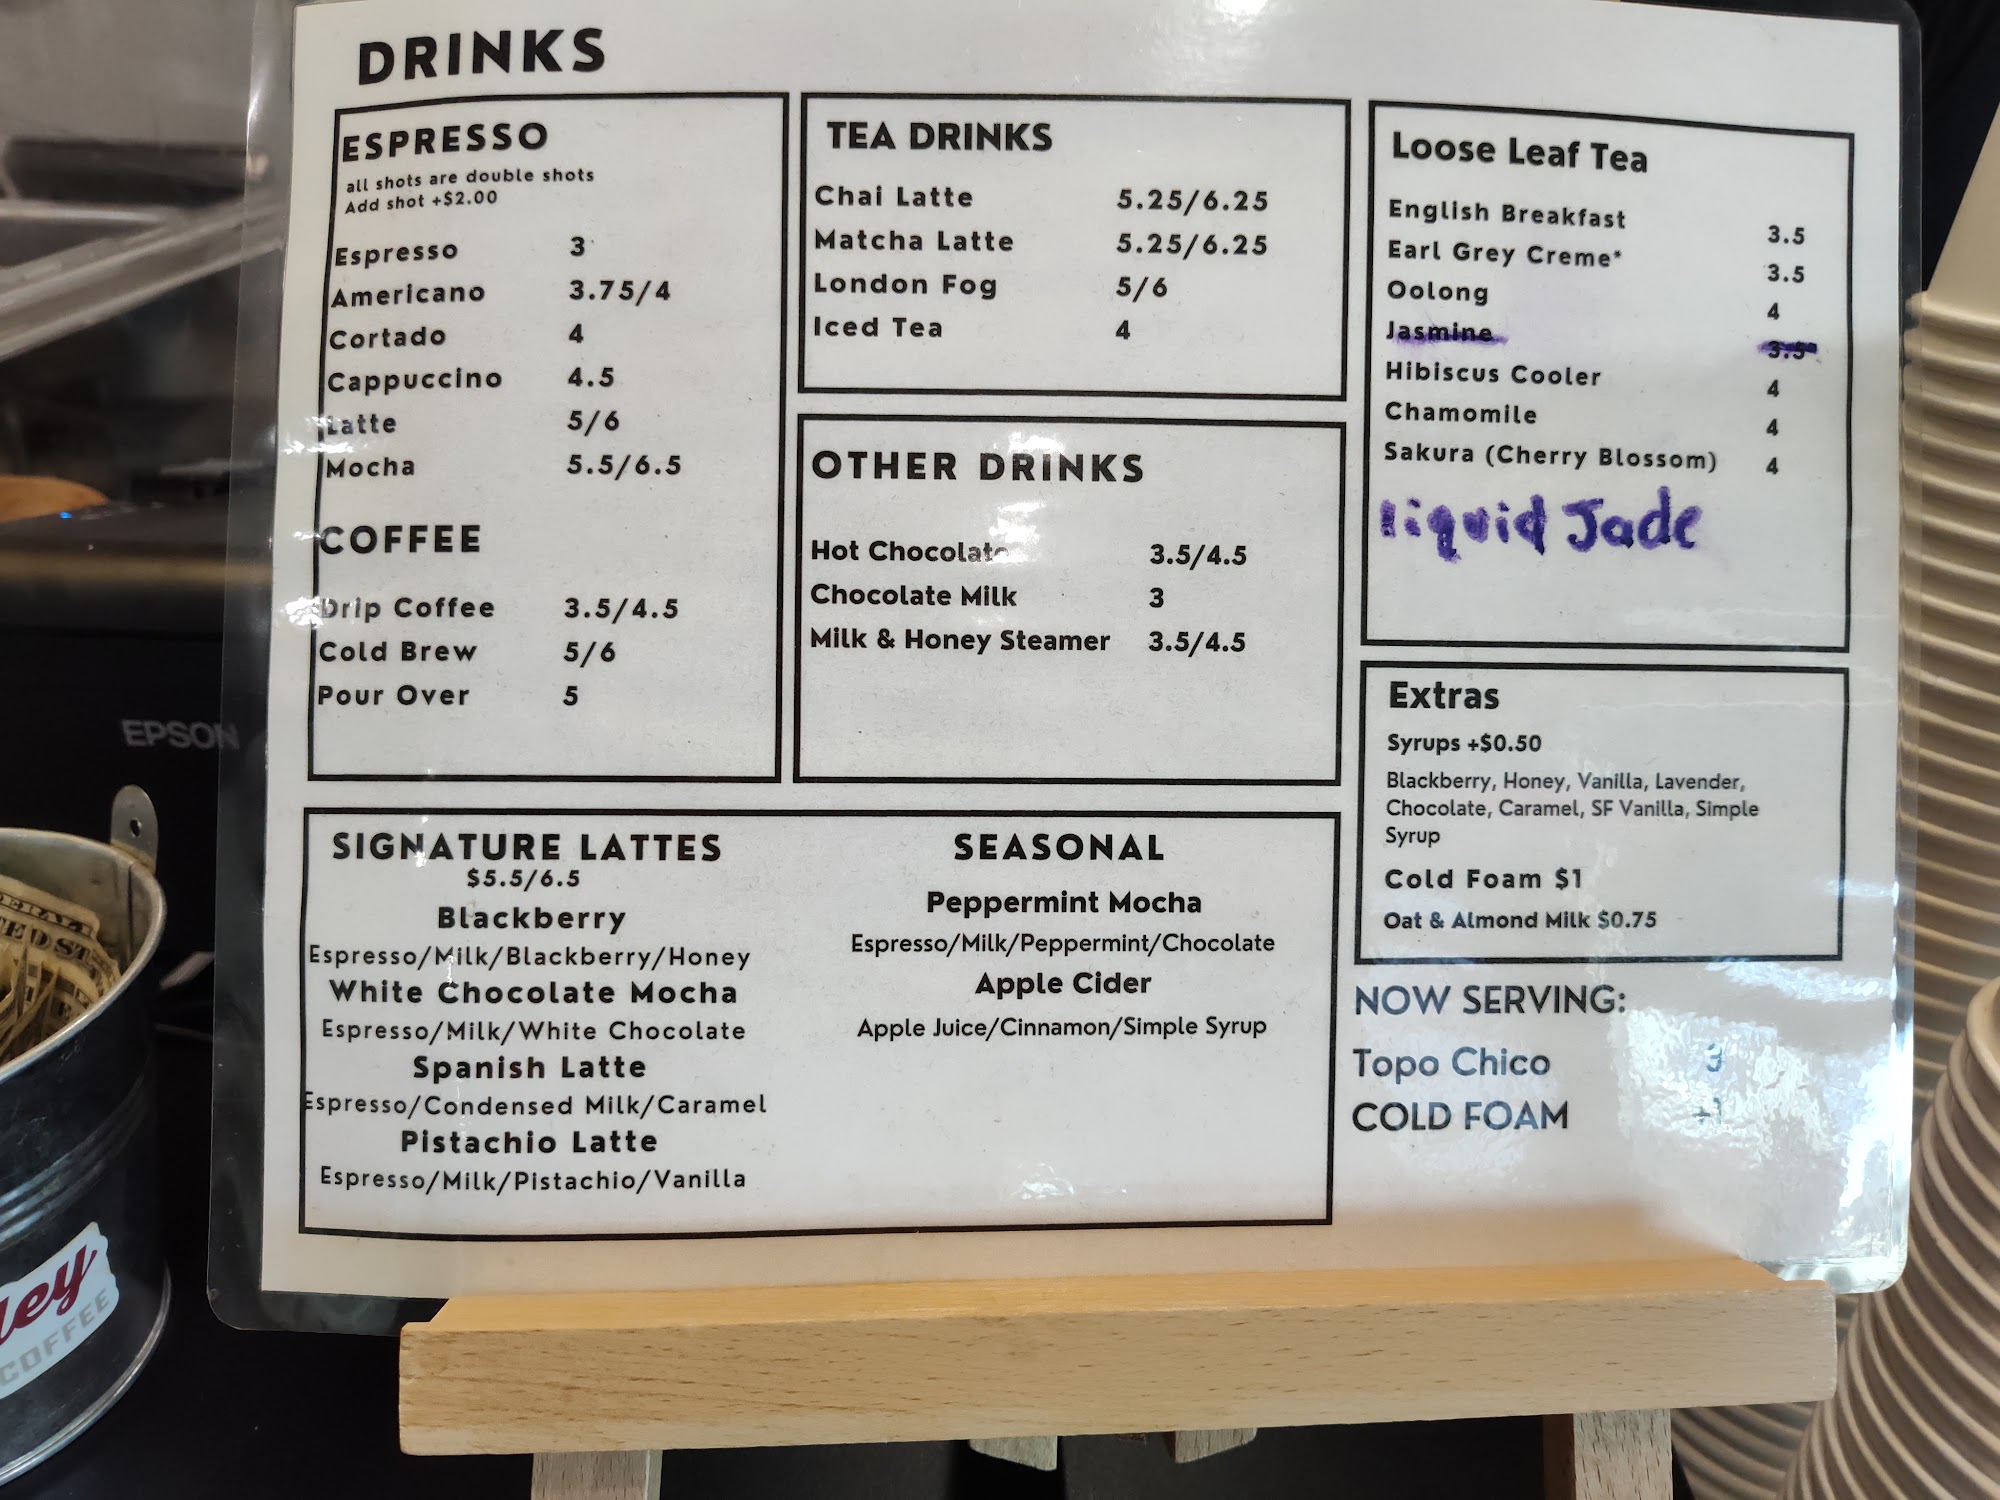 DRINKS
ESPRESSO
all shots are double shots
Add shot +$2.00
Espresso 3
Americano 3.75/4
Cortado 4
Cappuccino 4.5
Latte 5/6
Mocha 5.5/6.5
COFFEE
Drip Coffee 3.5/4.5
Cold Brew 5/6
Pour Over 5
TEA DRINKS
Chai Latte 5.25/6.25
Matcha Latte 5.25/6.25
London Fog 5/6
Iced Tea 4
OTHER DRINKS
Hot Chocolate 3.5/4.5
Chocolate Milk 3
Milk & Honey Steamer 3.5/4.5
Loose Leaf Tea
English Breakfast 3.5
Earl Grey Creme* 3.5
Oolong 4
Jasmine 3.5
Hibiscus Cooler 4
Chamomile 4
Sakura (Cherry Blossom) 4
Liquid Jade
Extras
Syrups +$0.50
Blackberry, Honey, Vanilla, Lavender,
Chocolate, Caramel, SF Vanilla, Simple
Syrup
Cold Foam $1
Oat & Almond Milk $0.75
NOW SERVING:
Topo Chico 3
COLD FOAM +1
SIGNATURE LATTES
$5.5/6.5
Blackberry
Espresso/Milk/Blackberry/Honey
White Chocolate Mocha
Espresso/Milk/White Chocolate
Spanish Latte
Espresso/Condensed Milk/Caramel
Pistachio Latte
Espresso/Milk/Pistachio/Vanilla
SEASONAL
Peppermint Mocha
Espresso/Milk/Peppermint/Chocolate
Apple Cider
Apple Juice/Cinnamon/Simple Syrup
EPSON
ley
COFFEE